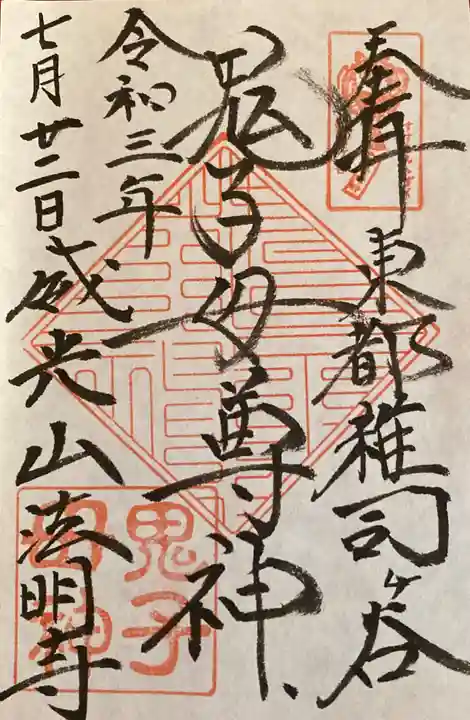 奉拝
東都雑司ヶ谷
鬼子母尊神
令和三年
七月廿二日
威光山法明寺
鬼子
母神